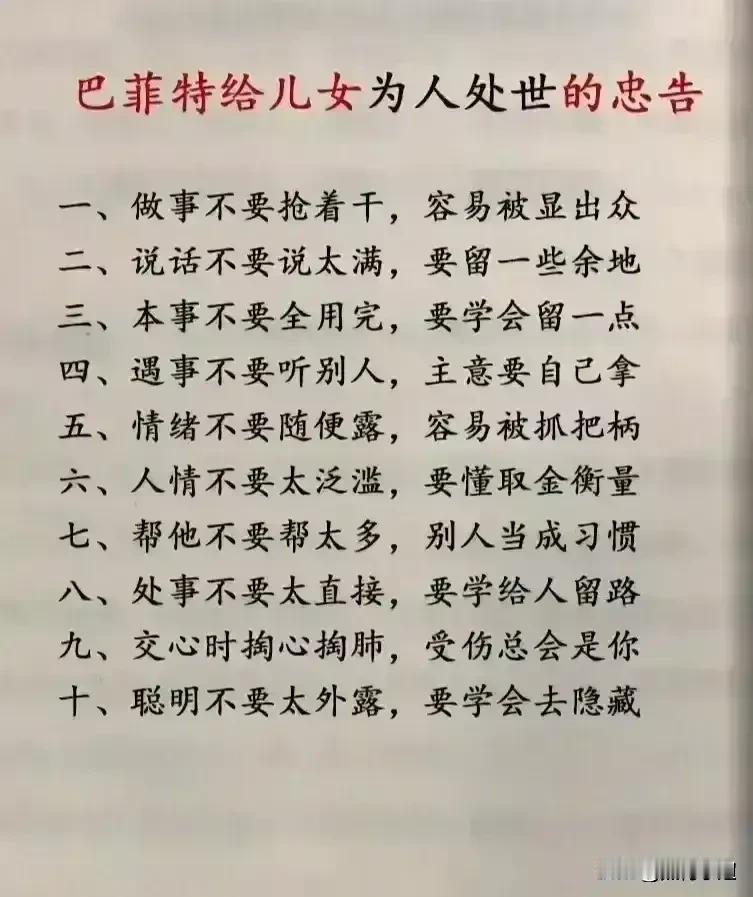 巴菲特给儿女为人处世的忠告
一、做事不要抢着干，容易被显出众
二、说话不要说太满，要留一些余地
三、本事不要全用完，要学会留一点
四、遇事不要听别人，主意要自己拿
五、情绪不要随便露，容易被抓把柄
六、人情不要太泛滥，要懂取金衡量
七、帮他不要帮太多，别人当成习惯
八、处事不要太直接，要学给人留路
九、交心时掏心掏肺，受伤总会是你
十、聪明不要太外露，要学会去隐藏